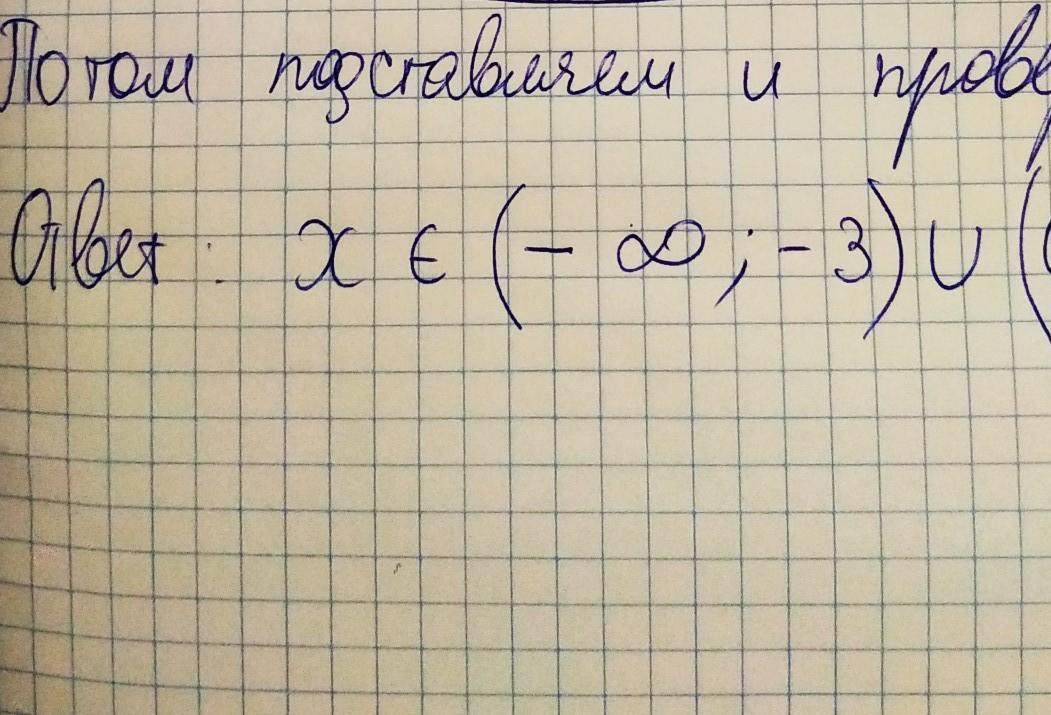 Потом подставляем и прове
Ответ: x ∈ (- ∞; -3) ∪ (